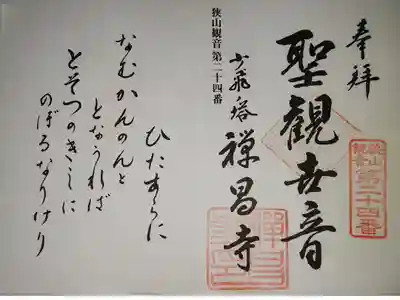 奉拝
狭山
観音
第二十四番
聖觀世音
禅昌寺
狭山観音第二十四番
ひたすらに
なむかんのんと
となうれば
とそつのきしに
のぼるなりけり